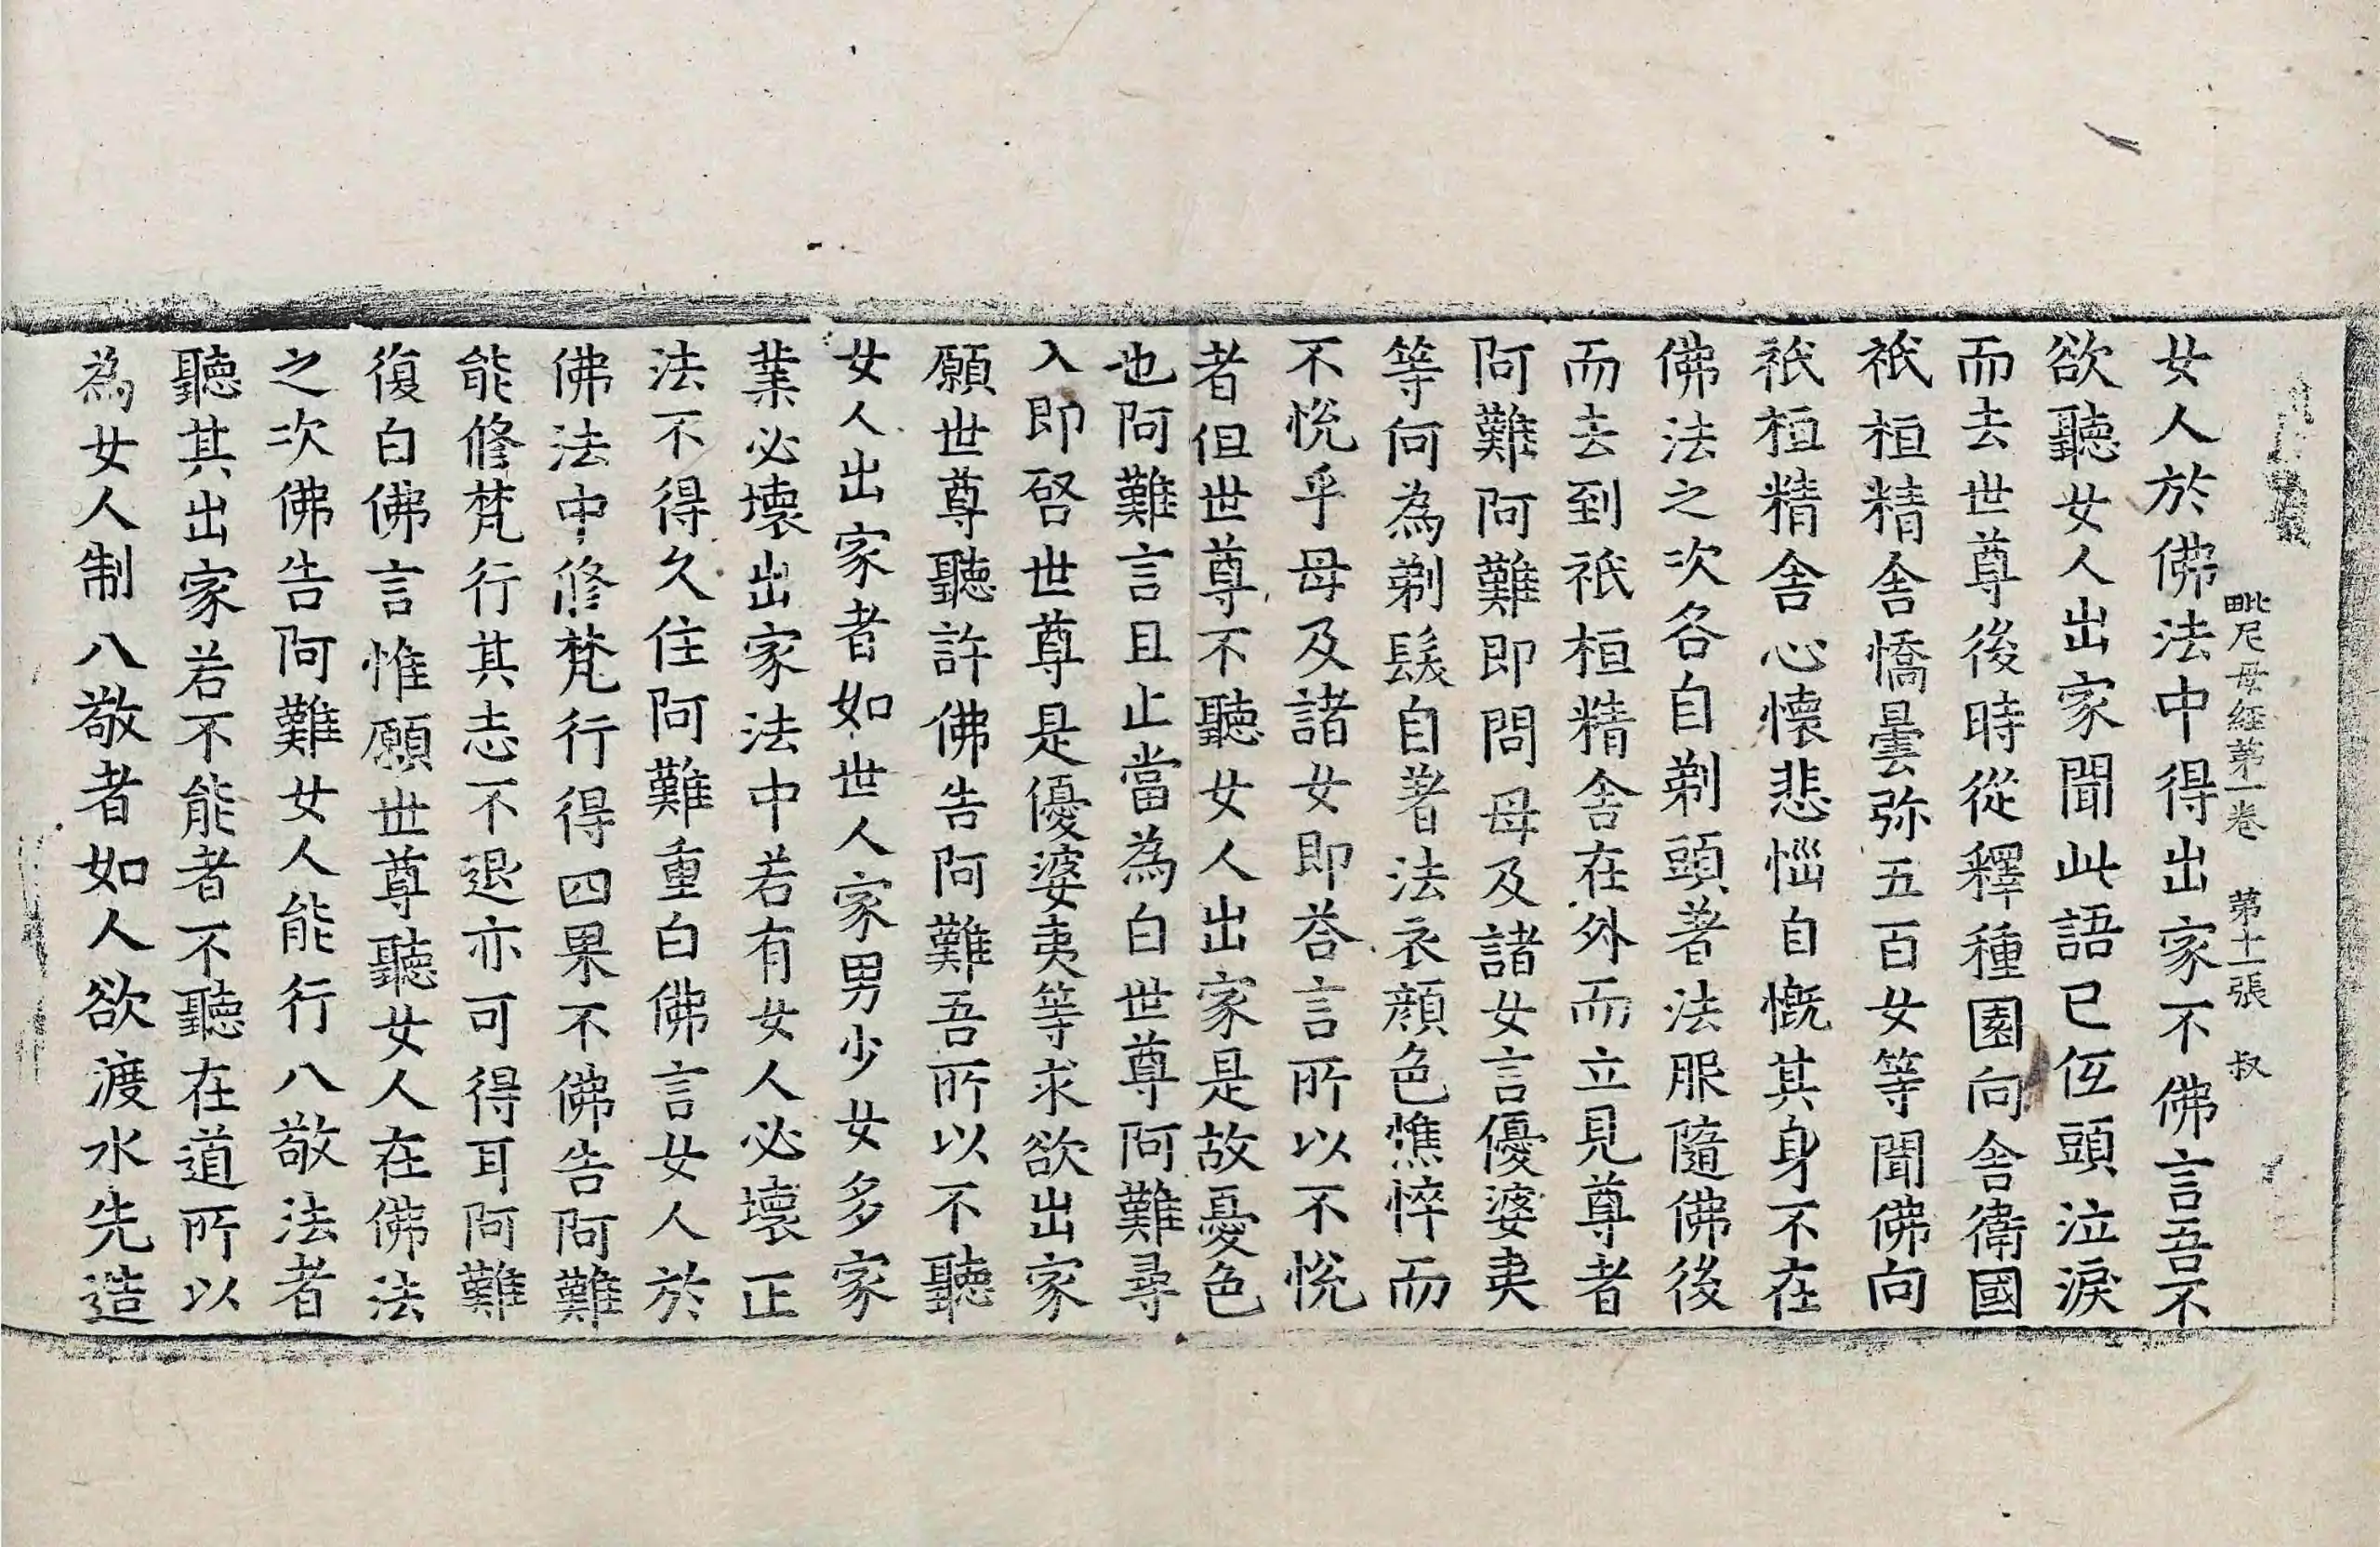 毗尼母經第一卷 第十一張 叔
女人於佛法中得出家不佛言吾不
欲聽女人出家聞此語已伍頭泣淚
而去世尊後時從釋種園向舍衛國
祇桓精舍憍曇弥五百女等聞佛向
祇桓精舍心懷悲惱自慨其身不在
佛法之次各自剃頭著法服隨佛後
而去到祇桓精舍在外而立見尊者
阿難阿難即問母及諸女言優婆夷
等何為剃髮自著法衣顔色憔悴而
不悅乎母及諸女即荅言所以不悅
者但世尊不聽女人出家是故憂色
也阿難言且止當為白世尊阿難尋
入即啓世尊是優婆夷等求欲出家
願世尊聽許佛告阿難吾所以不聽
女人出家者如世人家男少女多家
業必壞出家法中若有女人必壞正
法不得久住阿難重白佛言女人於
佛法中修梵行得四果不佛告阿難
能修梵行其志不退亦可得耳阿難
復白佛言惟願世尊聽女人在佛法
之次佛告阿難女人能行八敬法者
聽其出家若不能者不聽在道所以
為女人制八敬者如人欲渡水先造